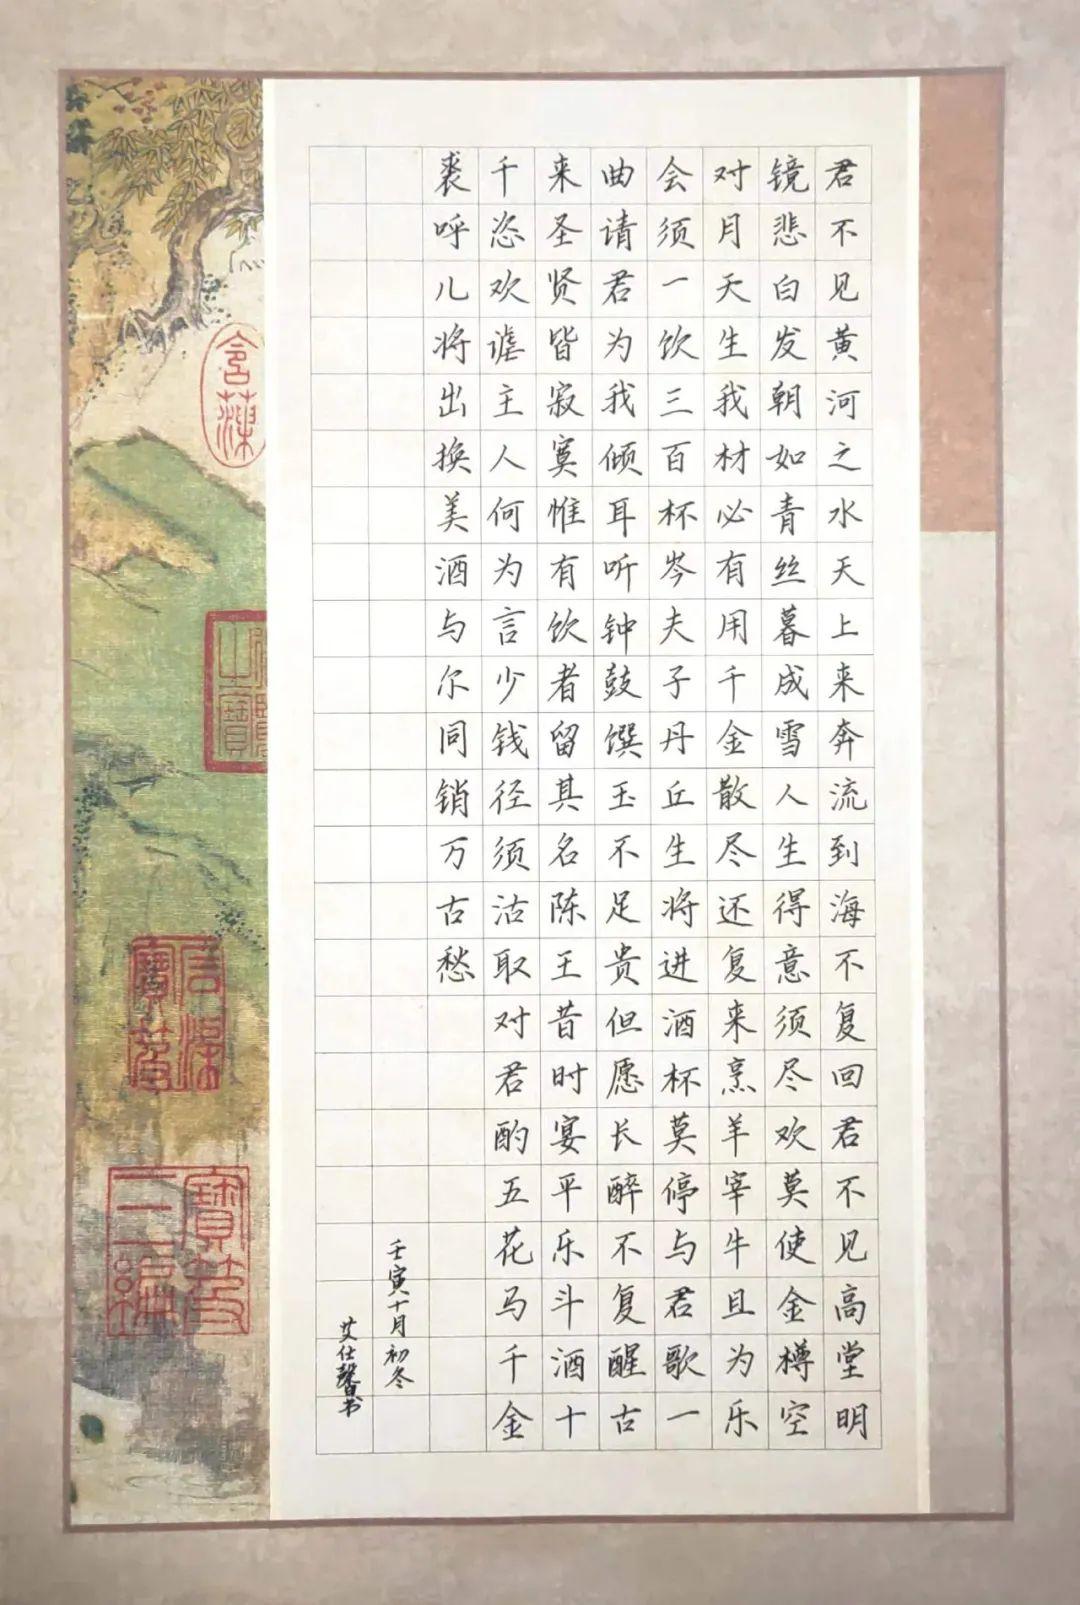 君不见黄河之水天上来奔流到海不复回君不见高堂明
镜悲白发朝如青丝暮成雪人生得意须尽欢莫使金樽空
对月天生我材必有用千金散尽还复来烹羊宰牛且为乐
会须一饮三百杯岑夫子丹丘生将进酒杯莫停与君歌一
曲请君为我倾耳听钟鼓馔玉不足贵但愿长醉不复醒古
来圣贤皆寂寞惟有饮者留其名陈王昔时宴平乐斗酒十
千恣欢谑主人何为言少钱径须沽取对君酌五花马千金
裘呼儿将出换美酒与尔同销万古愁
壬寅十月初冬